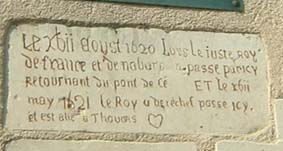 Le xbii aoust 1620 Louis le iuste ROY
de france et de nabara a passe par ICY
retournant du pont de Cé ET Le xbii
may 1621 Le Roy a derechef passe ICY
et est alle a Thouars